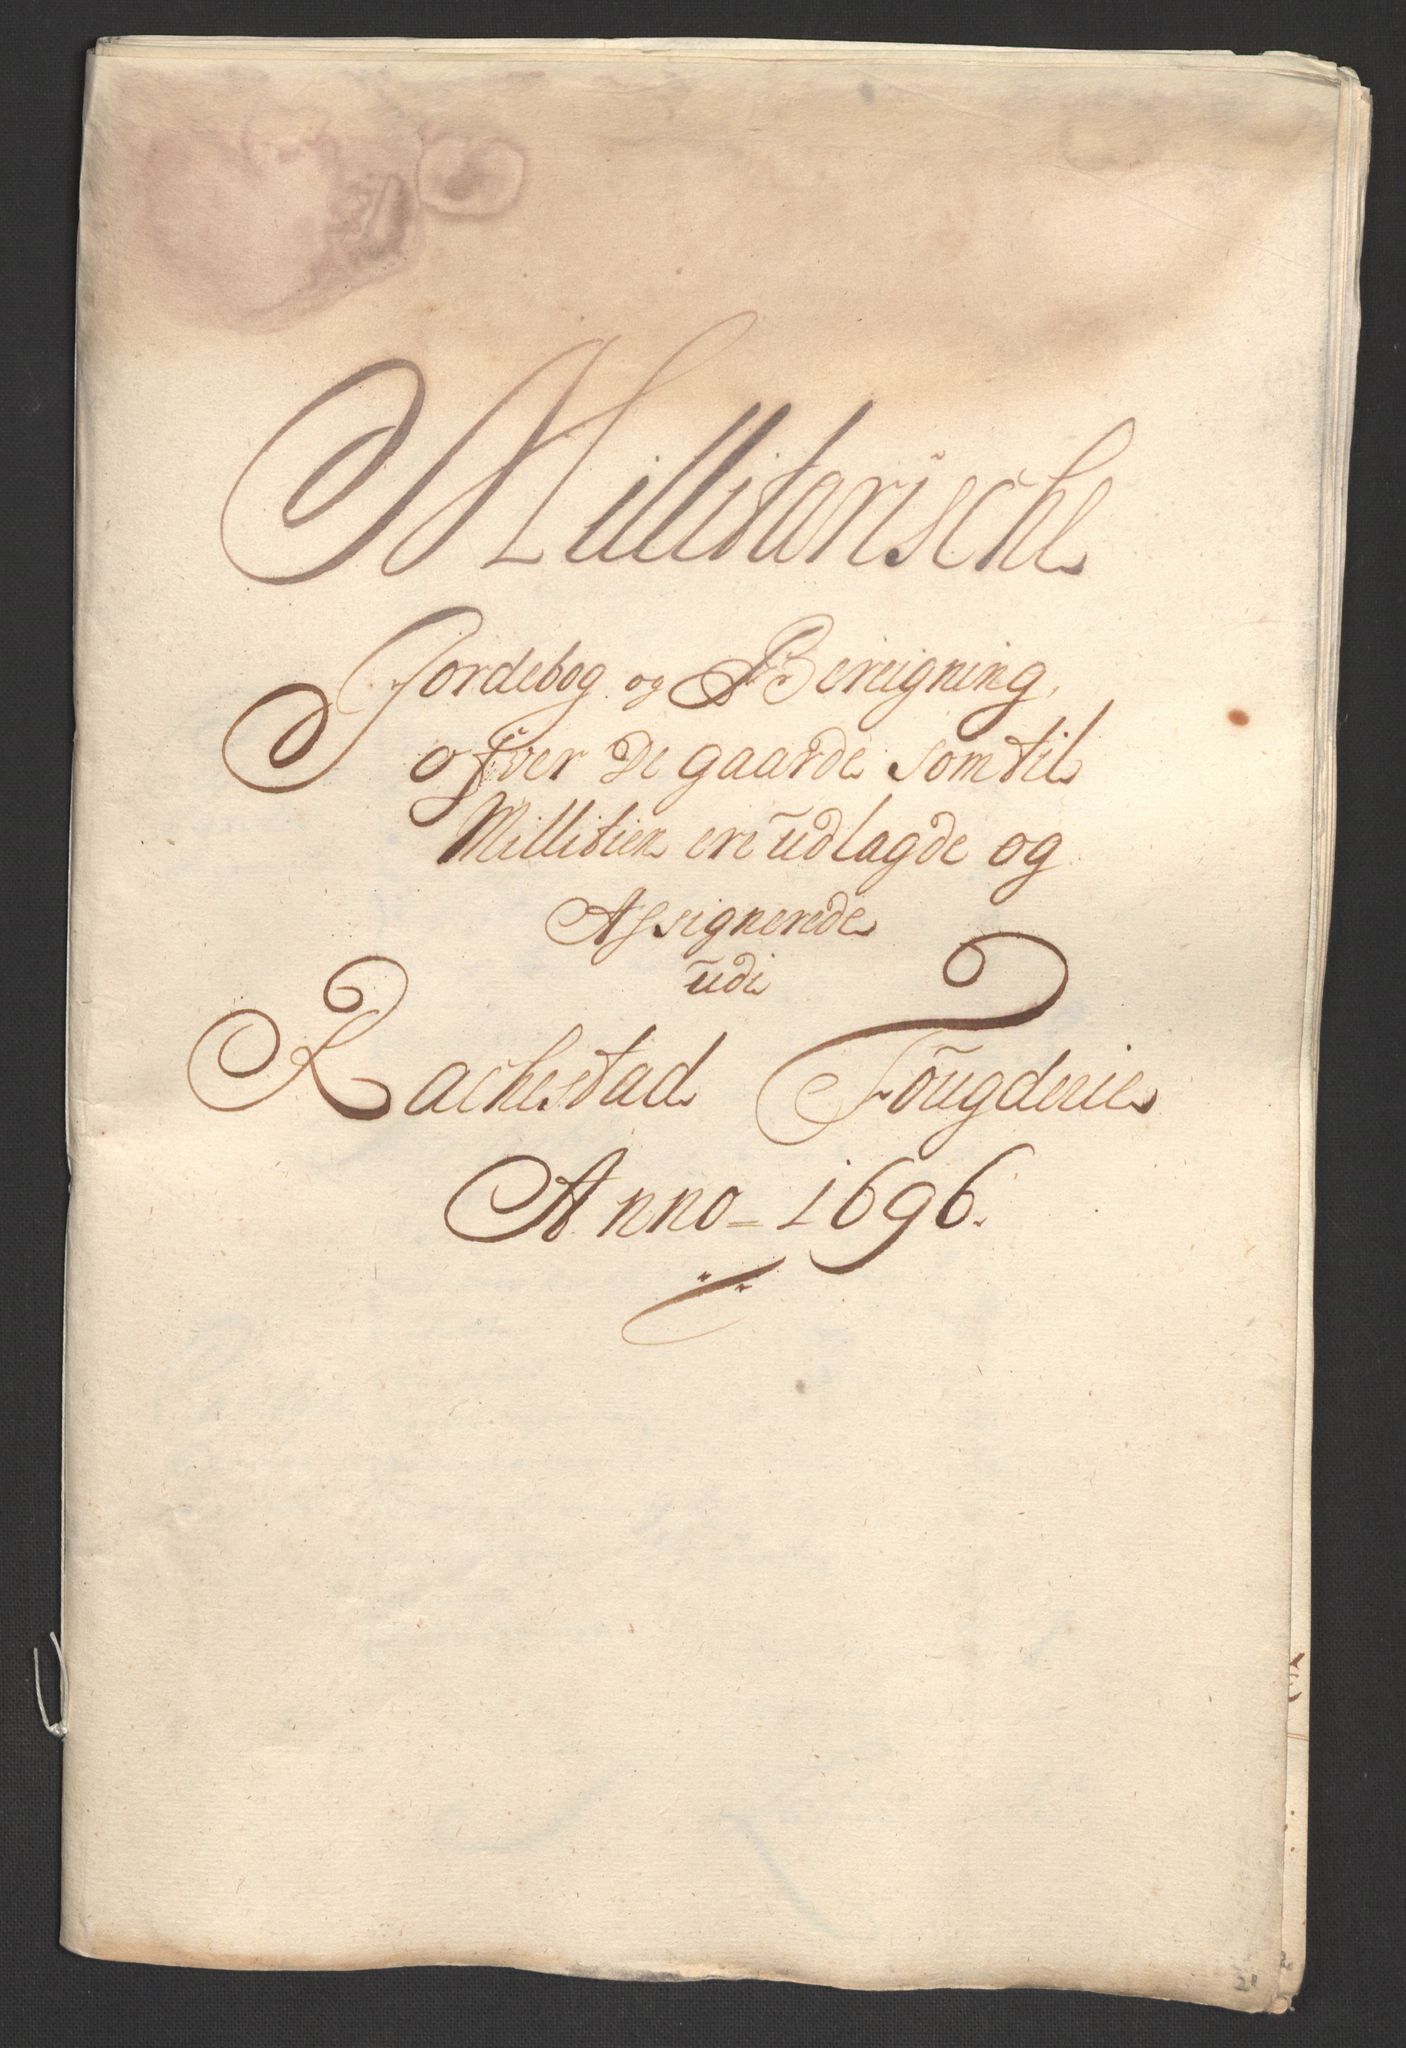 Millitarische
Jordebog og Bereigning,
ofver De gaarde som til
Millitien ere udlagde og
Assignerede
udi
Rachestad Fougderie
Anno 1696.